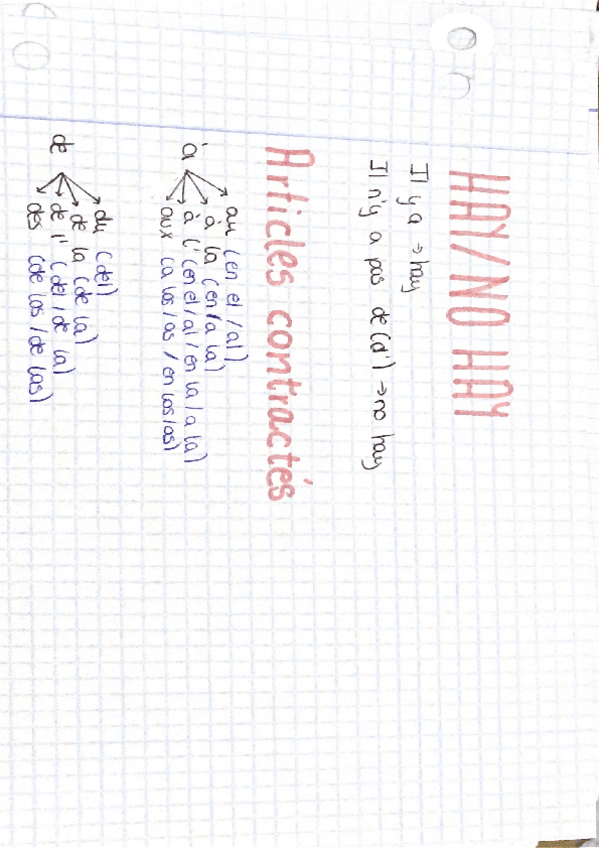 HAY/NO HAY
Il y a → hay
Il n'y a pas de (d') → no hay
Articles contractés
à
au (en el/al)
à la (en/a la)
à l' (en el/al/en la/a la)
aux (a los/as/en los/as)
de
du (del)
de la (de la)
de l' (del/de la)
des (de los/de las)